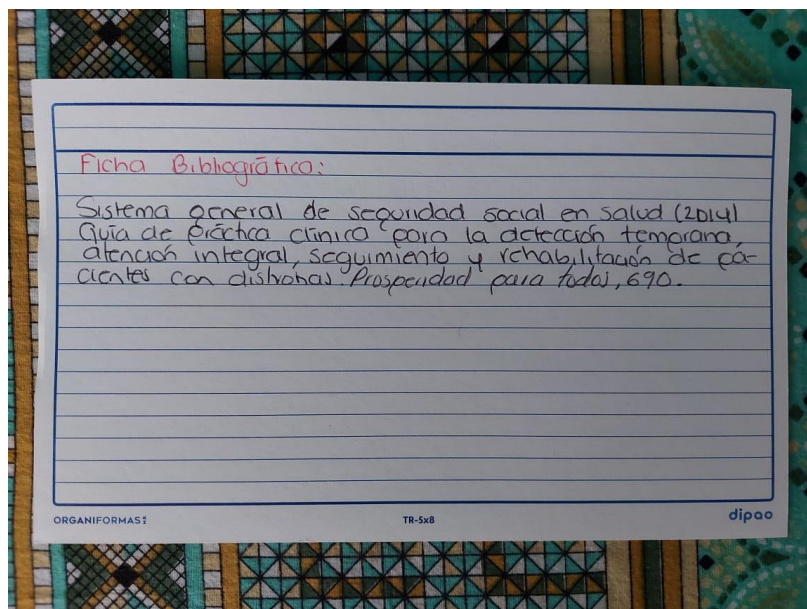 Ficha Bibliográfica:
Sistema general de seguridad social en salud (2014)
Guía de práctica clínica para la detección temprana,
atención integral, seguimiento y rehabilitación de pa-
cientes con distrofias. Prosperidad para todos, 690.
ORGANIFORMAS
TR-5x8
dipao